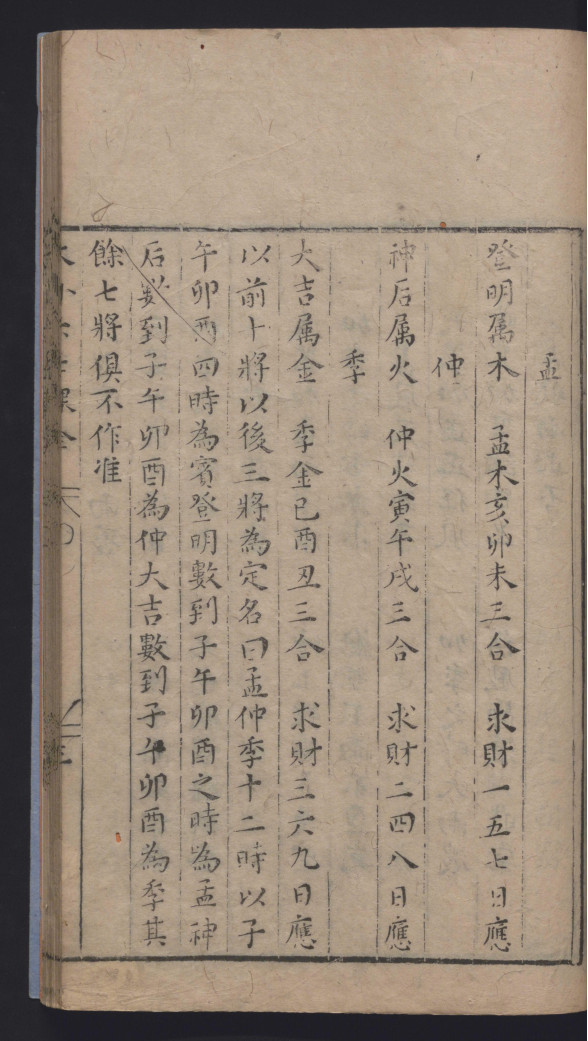 孟
登明属木 孟木亥卯未三合 求財一五七日應
仲
神后属火 仲火寅午戌三合 求財二四八日應
季
大吉属金 季金巳酉丑三合 求財三六九日應
以前十將以後三將為定名曰孟仲季十二時以子
午卯酉四時為賓登明數到子午卯酉之時為孟神
后數到子午卯酉為仲大吉數到子午卯酉為季其
餘七將俱不作准